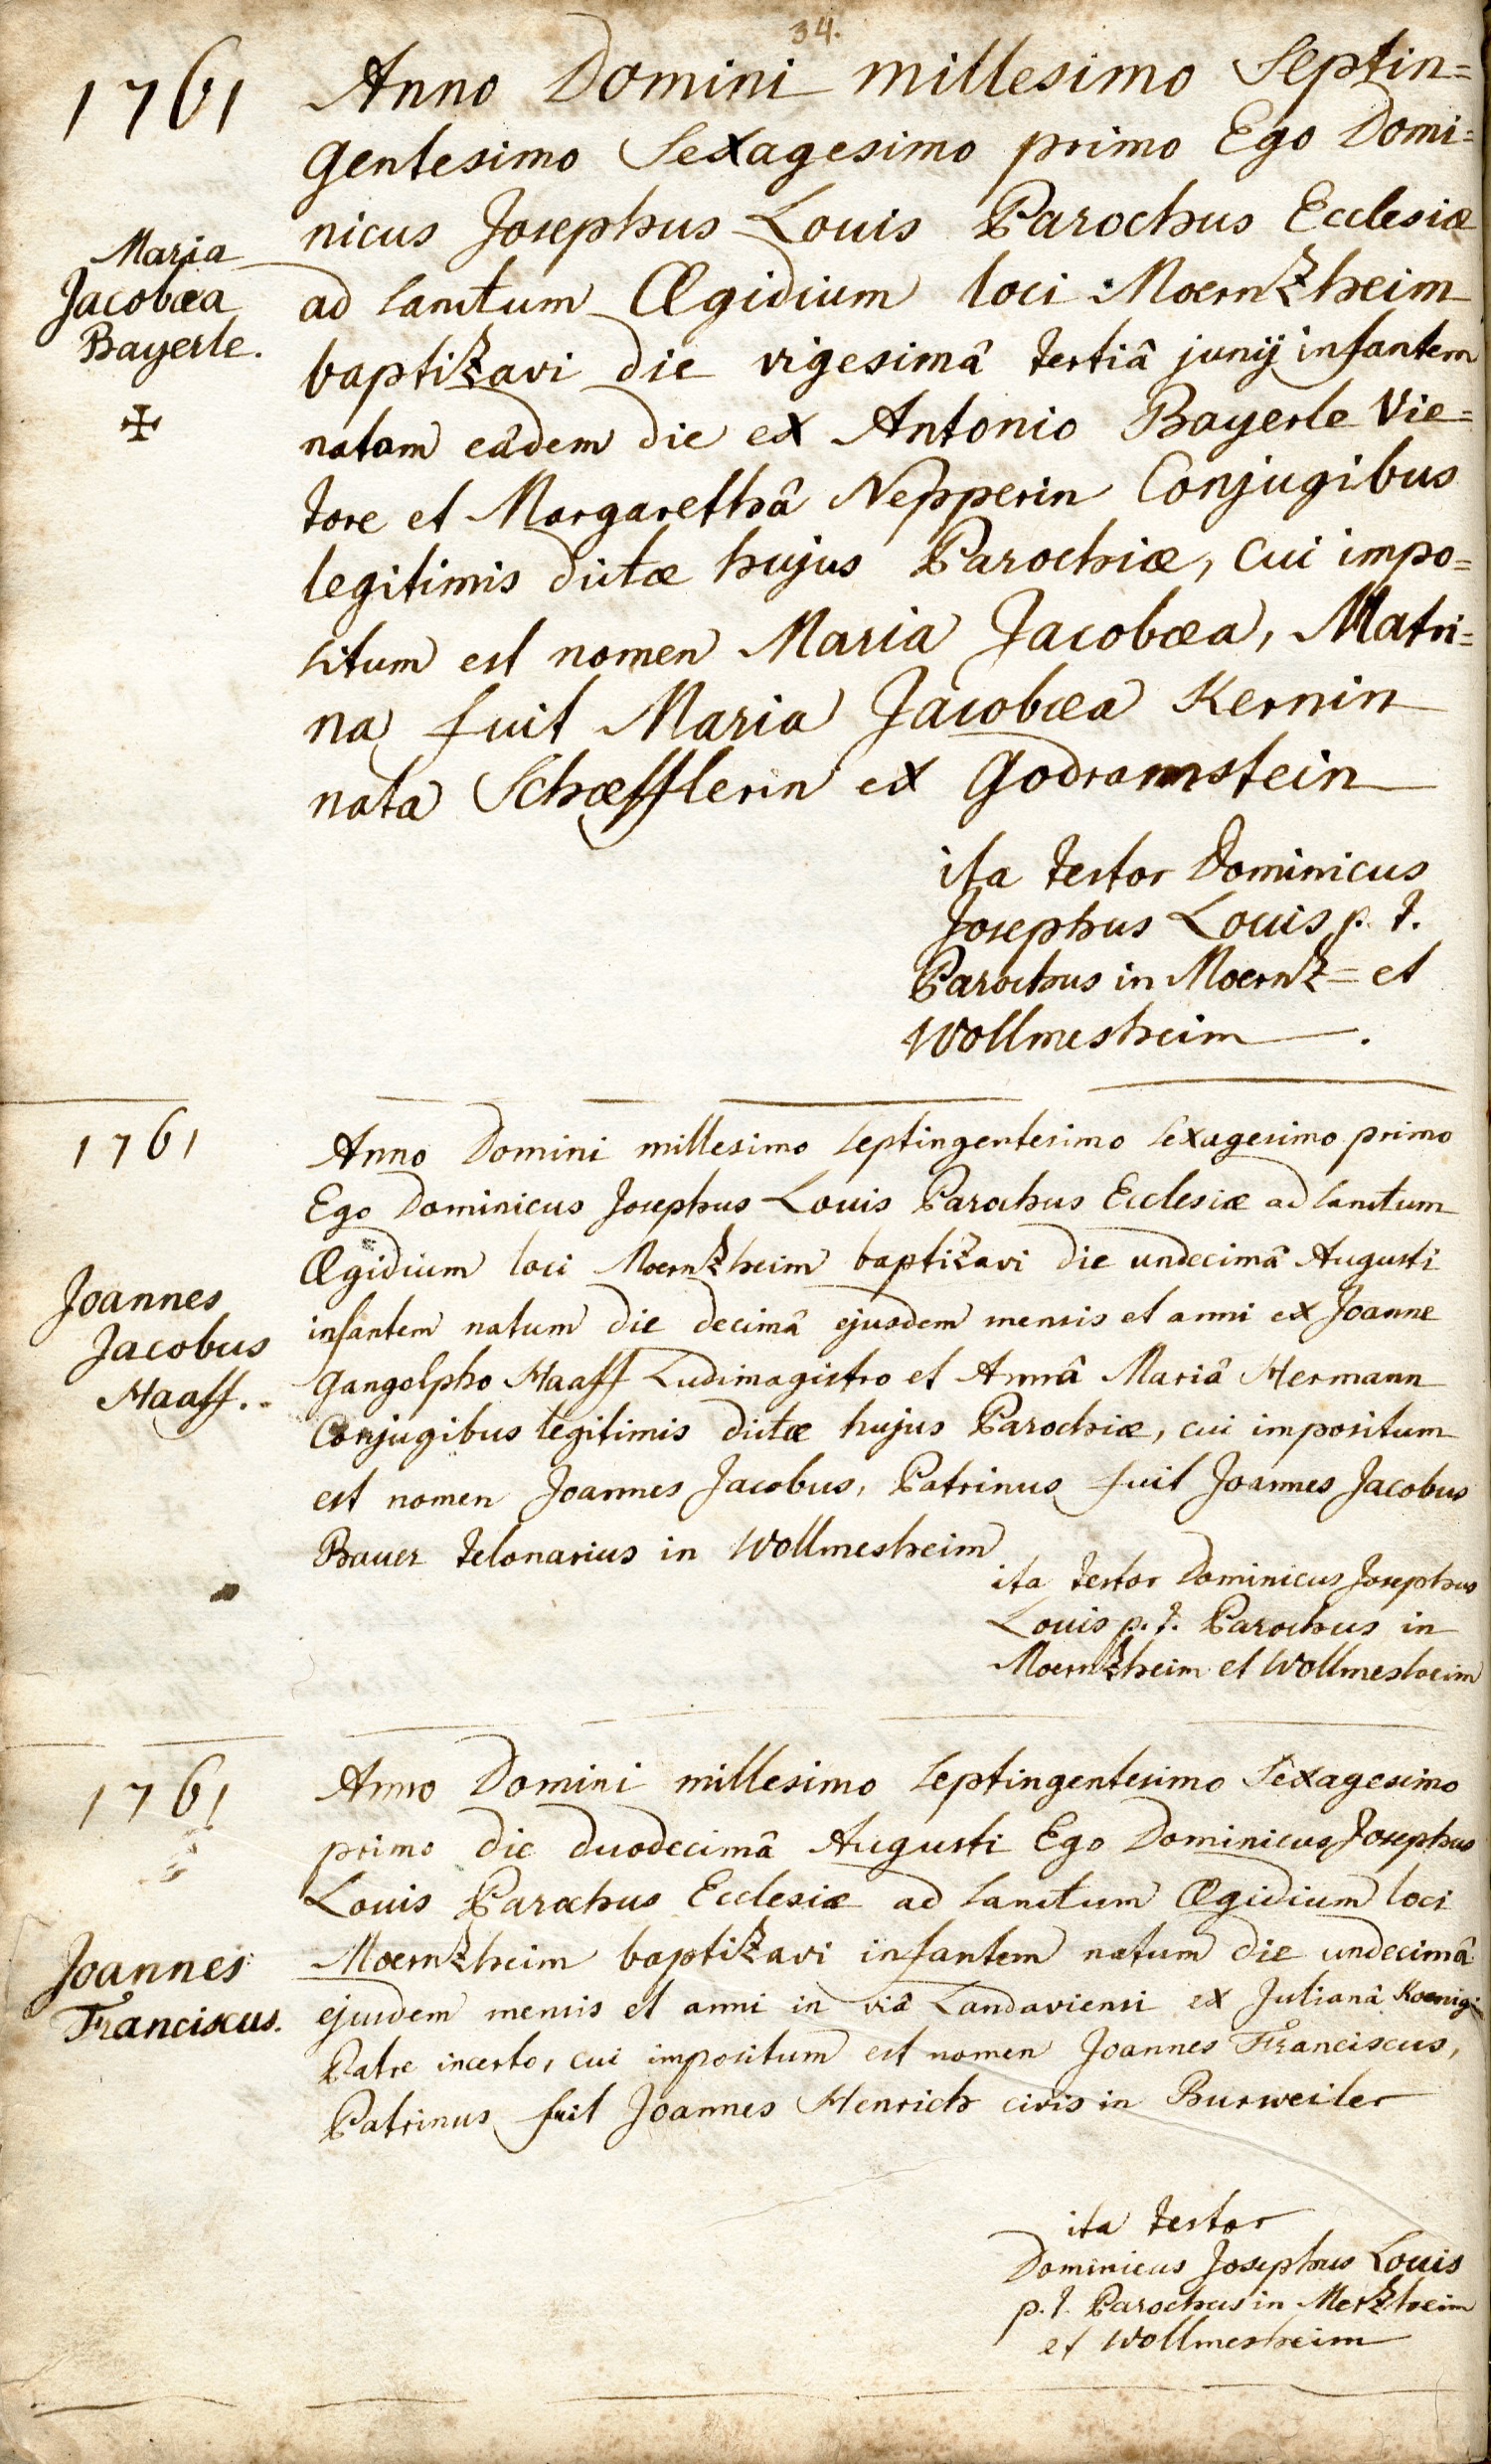 34.
1761
Anno Domini millesimo Septin=
gentesimo Sexagesimo primo Ego Domi=
nicus Josephus Louis Parochus Ecclesiæ
Maria
Jacobæa
Bayerle.
✠
ad sanctum Ægidium loci Moernzheim
baptizavi die vigesimâ tertiâ junij infantem
natam eâdem die ex Antonio Bayerle Vie=
tore et Margarethâ Nepperin Conjugibus
legitimis dictæ hujus Parochiæ, cui impo=
situm est nomen Maria Jacobæa, Matri=
na fuit Maria Jacobæa Kernin
nata Schæfflerin ex Godramstein
ita testor Dominicus
Josephus Louis p. t.
Parochus in Moernz= et
Wollmesheim.
1761
Anno Domini millesimo septingentesimo sexagesimo primo
Ego Dominicus Josephus Louis Parochus Ecclesiæ ad sanctum
Ægidium loci Moernzheim baptizavi die undecimâ Augusti
Joannes
Jacobus
Haaff.
infantem natum die decimâ ejusdem mensis et anni ex Joanne
Gangolpho Haaff Ludimagistro et Annâ Mariâ Hermann
Conjugibus legitimis dictæ hujus Parochiæ, cui impositum
est nomen Joannes Jacobus, Patrinus fuit Joannes Jacobus
Bauer telonarius in Wollmesheim
ita testor Dominicus Josephus
Louis p. t. Parochus in
Moernzheim et Wollmesheim
1761
Anno Domini millesimo septingentesimo Sexagesimo
primo die duodecimâ Augusti Ego Dominicus Josephus
Louis Parochus Ecclesiæ ad sanctum Ægidium loci
Joannes
Franciscus.
Moernzheim baptizavi infantem natum die undecimâ
ejusdem mensis et anni in viâ Landaviensi ex Julianâ Koenigin
Patre incerto, cui impositum est nomen Joannes Franciscus,
Patrinus fuit Joannes Henrich civis in Burweiler
ita testor
Dominicus Josephus Louis
p. t. Parochus in Merzheim
et Wollmesheim